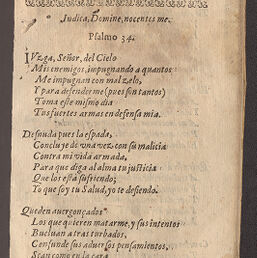 Iudica, Domine, nocentes me.
Psalmo 34.
IVzga, Señor, del Cielo
Mis enemigos, impugnando a quantos
Me impugnan con mal zelo,
Y para defenderme (pues son tantos)
Toma este mismo dia
Tus fuertes armas en defensa mia.
Desnuda pues la espada,
Concluye de vna vez con su malicia
Contra mi vida armada,
Para que diga al alma tu justicia
Que los està sufriendo;
Yo que soy tu Salud, yo te defiendo.
Queden auergonçados
Los que quieren matarme, y sus intentos
Bueluan atras turbados,
Confunde sus aduersos pensamientos,
Sean como en la cara